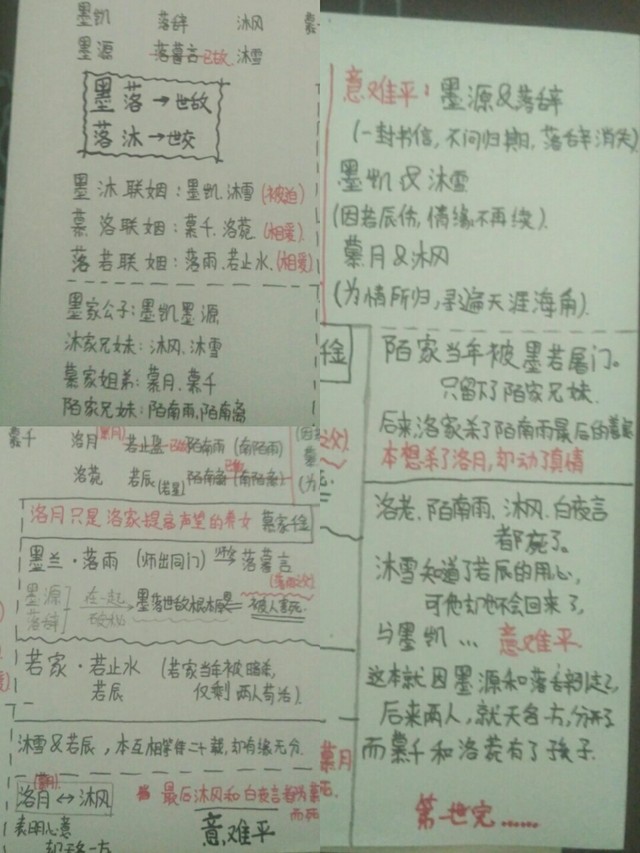 墨凯 落辞 沐风
墨源 落暮言 已故 沐雪
墨 落 → 世故
落 沐 → 世交
墨 沐 联姻：墨凯.沐雪(被迫)
慕 洛 联姻：慕千.洛菀(相爱)
落 若 联姻：落雨.若止水(相爱)
墨家公子：墨凯 墨源
沐家兄妹：沐风、沐雪
慕家姐弟：慕月、慕千
陌家兄妹：陌南雨,陌南
慕千 洛月(慕月) 若止 陌南雨(南陌雨)
洛菀 若辰(若星) 陌南
洛月只是洛家提高声望的养女 慕家千金
墨兰·落雨 (师出同门) 落暮言
墨源 落辞 在一起 墨落世故根本是 被人害死
若家·若止水 (若家当年被暗杀,
若辰 仅剩两人苟活)
沐雪&若辰，本互相等候二十载,却有缘无分.
(慕月)
洛月 ↔ 沐风 最后沐风和白夜言都为慕
而死
表明心意 意难平
意难平：墨源&落辞
(一封书信,不问归期,落辞消失)
墨凯&沐雪
(因若辰伤,情缘不再续).
慕月&沐风
(为情所归,寻遍天涯海角).
千金
陌家当年被墨若屠门。
只留下陌家兄妹.
后来洛家杀了陌南雨最后的
本想杀了洛月,却动了真情
洛老、陌南雨、沐风、白夜言
都死了。
沐雪知道了若辰的用心,
可他却也不会回来了,
与墨凯… 意难平
这本就因墨源和落辞
后来两人,就天各一方,分开了
而慕千和洛菀有了孩子.
慕月
第一世完……